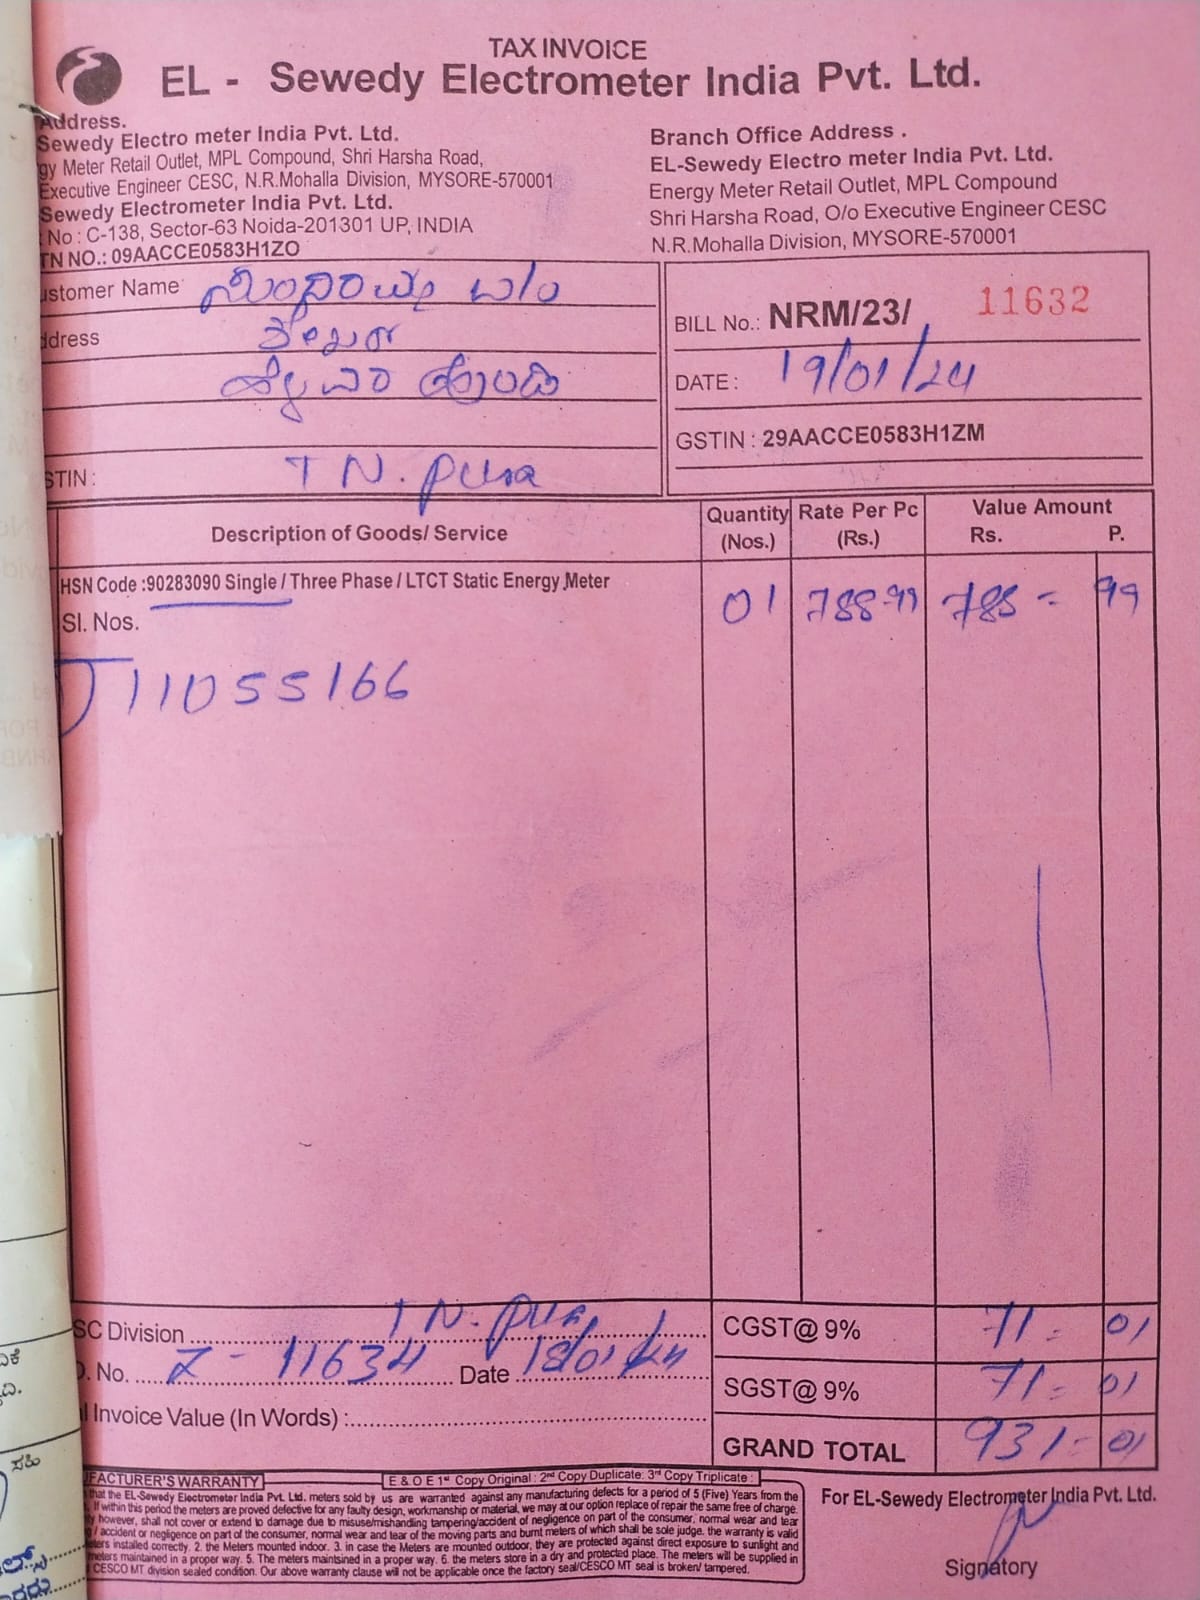 TAX INVOICE
EL - Sewedy Electrometer India Pvt. Ltd.
Address.
Sewedy Electro meter India Pvt. Ltd.
gy Meter Retail Outlet, MPL Compound, Shri Harsha Road,
Executive Engineer CESC, N.R.Mohalla Division, MYSORE-570001
Sewedy Electrometer India Pvt. Ltd.
No : C-138, Sector-63 Noida-201301 UP, INDIA
TN NO.: 09AACCE0583H1ZO
Branch Office Address .
EL-Sewedy Electro meter India Pvt. Ltd.
Energy Meter Retail Outlet, MPL Compound
Shri Harsha Road, O/o Executive Engineer CESC
N.R.Mohalla Division, MYSORE-570001
ustomer Name
ddress
STIN : T N. pura
BILL No.: NRM/23/ 11632
DATE : 19/01/24
GSTIN : 29AACCE0583H1ZM
Description of Goods/ Service Quantity (Nos.) Rate Per Pc (Rs.) Value Amount Rs. P.
HSN Code :90283090 Single / Three Phase / LTCT Static Energy Meter 01 788-99 788 = 99
Sl. Nos.
11055166
SC Division T N. pura
. No. Z - 11634 Date 18/01/24
l Invoice Value (In Words) :
CGST@ 9% 71 = 01
SGST@ 9% 71 = 01
GRAND TOTAL 931 = 01
UFACTURER'S WARRANTY E & O E 1st Copy Original : 2nd Copy Duplicate: 3rd Copy Triplicate :
that the EL-Sewedy Electrometer India Pvt. Ltd. meters sold by us are warranted against any manufacturing defects for a period of 5 (Five) Years from the
. If within this period the meters are proved defective for any faulty design, workmanship or material, we may at our option replace of repair the same free of charge.
ty however, shall not cover or extend to damage due to misuse/mishandling tampering/accident of negligence on part of the consumer, normal wear and tear
/ accident or negligence on part of the consumer, normal wear and tear of the moving parts and burnt meters of which shall be sole judge. the warranty is valid
eters installed correctly. 2. the Meters mounted indoor. 3. in case the Meters are mounted outdoor, they are protected against direct exposure to sunlight and
meters maintained in a proper way. 5. The meters maintsined in a proper way. 6. the meters store in a dry and protected place. The meters will be supplied in
CESCO MT division sealed condition. Our above warranty clause will not be applicable once the factory seal/CESCO MT seal is broken/ tampered.
For EL-Sewedy Electrometer India Pvt. Ltd.
Signatory